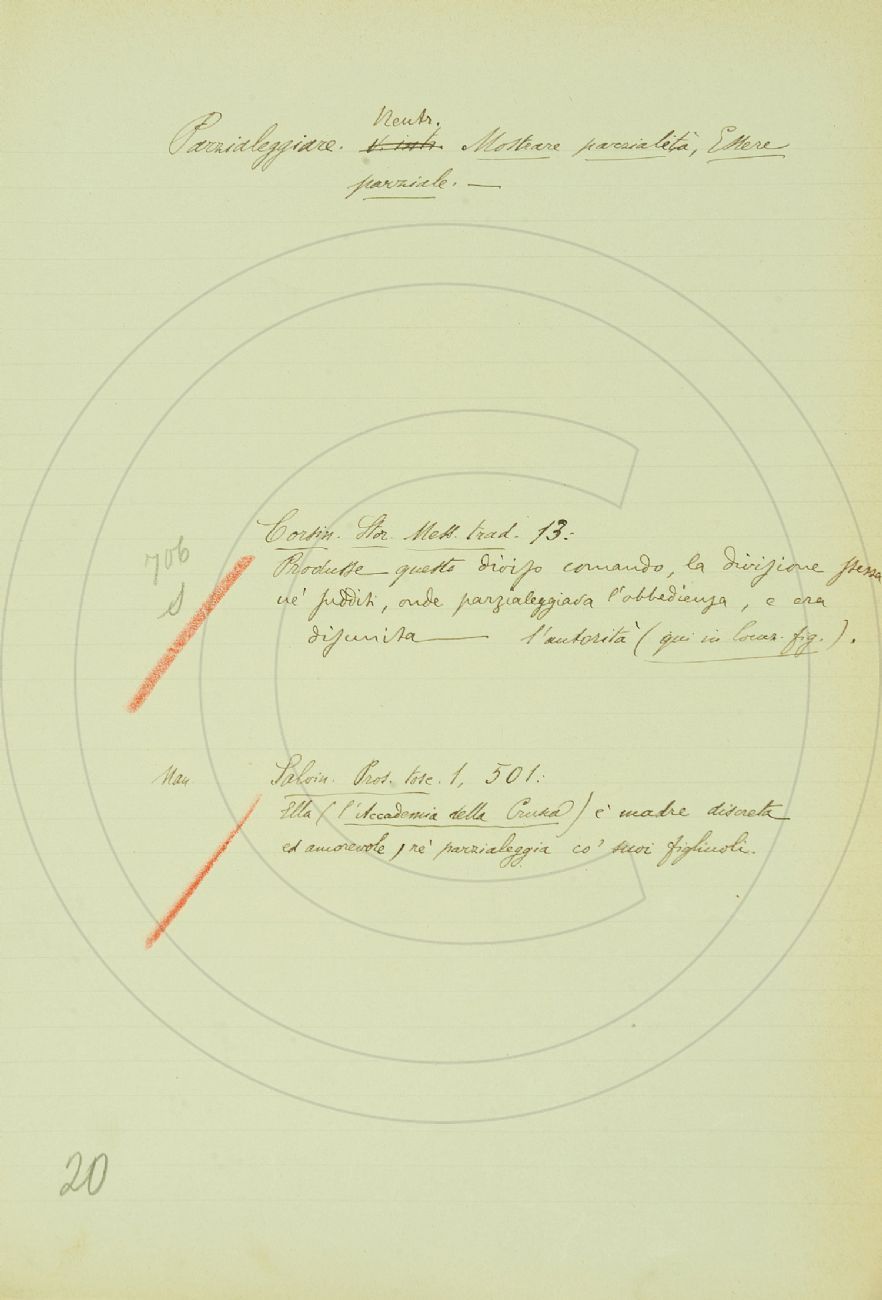 Neutr.
Parzialeggiare. V. intr. Mostrare parzialità, Essere
parziale. —
Corsin. Stor. Mess. trad. 13:
706
Produsse questo diviso comando, la divisione stessa
S
ne' sudditi, onde parzialeggiava l'obbedienza, e era
disunita — l'autorità (qui in locuz. fig.).
Man
Salvin. Pros. tosc. 1, 501:
Ella (l'Accademia della Crusca) è madre discreta
ed amorevole, nè parzialeggia co' suoi figliuoli.
20